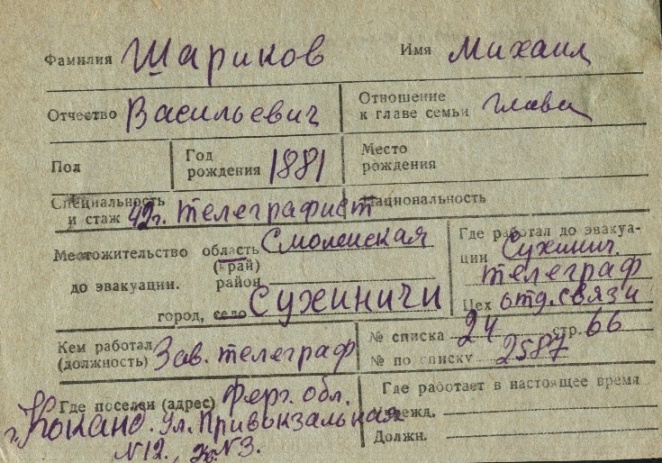 Фамилия Шариков Имя Михаил
Отчество Васильевич Отношение к главе семьи глава
Пол Год рождения 1881 Место рождения
Специальность и стаж 42 г. телеграфист Национальность
Местожительство до эвакуации. область (край) Смоленская
район
город, село Сухиничи
Где работал до эвакуации Сухинич. телеграф
Цех отд. связи
Кем работал (должность) Зав. телеграф
№ списка 24 стр. 66
№ по списку 2587
Где поселен (адрес) Ферг. обл.
г. Коканд. ул. Привокзальная
№12., к. №3.
Где работает в настоящее время
Учрежд.
Должн.